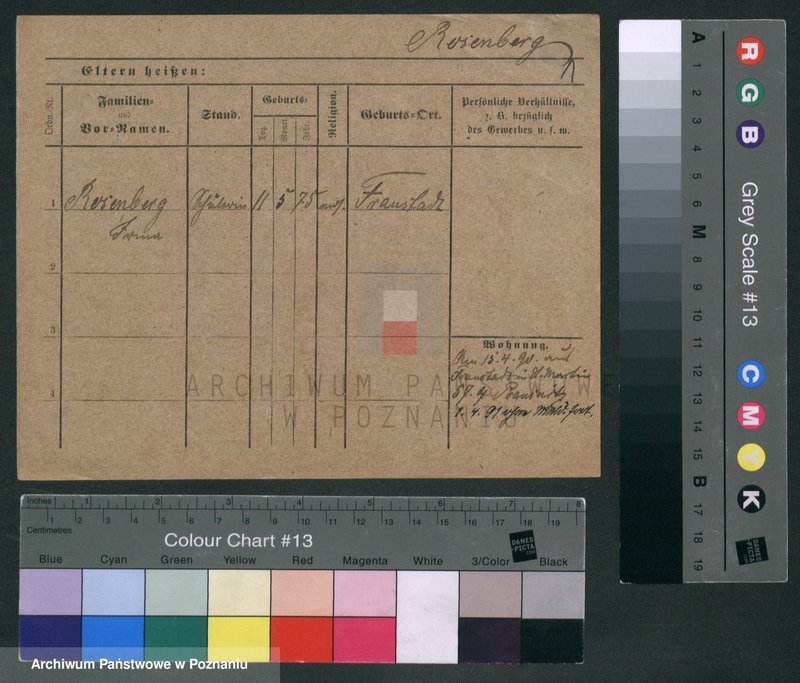 Rosenberg
Eltern heißen:
Ordn.-Nr.
Familien-
und
Vor-Namen.
Stand.
Geburts-
Tag.
Monat.
Jahr.
Religion.
Geburts-Ort.
Persönliche Verhältnisse,
z. B. bezüglich
des Gewerbes u. s. w.
1 Rosenberg Schülerin 11 5 75 mos. Fraustadt
Irma
2
3
4
Wohnung.
Am 15.4.90. aus
Fraustadt in St. Martin
1.4.91 fort.
ARCHIWUM PAŃSTWOWE
W POZNANIU
Inches 1 2 3 4 5 6 7 8
1 2 3 4 5 6 7 8 9 10 11 12 13 14 15 16 17 18 19
Centimetres
Colour Chart #13
DANES
-PICTA
.COM
Blue Cyan Green Yellow Red Magenta White 3/Color Black
Archiwum Państwowe w Poznaniu
A 1 2 3 4 5 6 M 8 9 10 11 12 13 14 15 B 17 18 19
R G B
Grey Scale #13
C M Y K
DANES
-PICTA
.COM